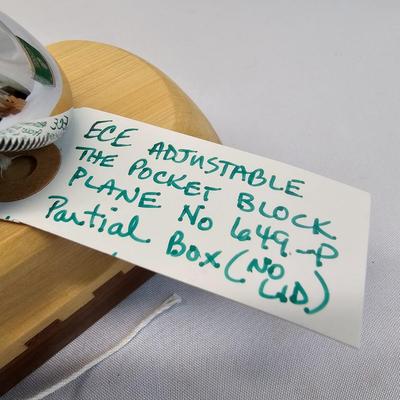 ECE ADJUSTABLE
THE POCKET BLOCK
PLANE No 649.-P
Partial Box (NO
LID)